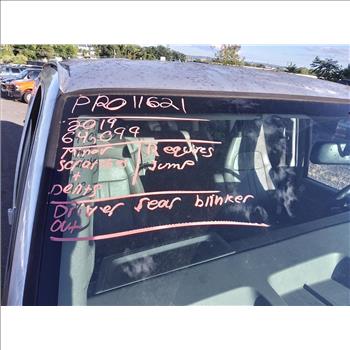 PRO11621
2019
64,099
minor Requires
scrapes Jump
+
Dents
Driver rear blinker
out